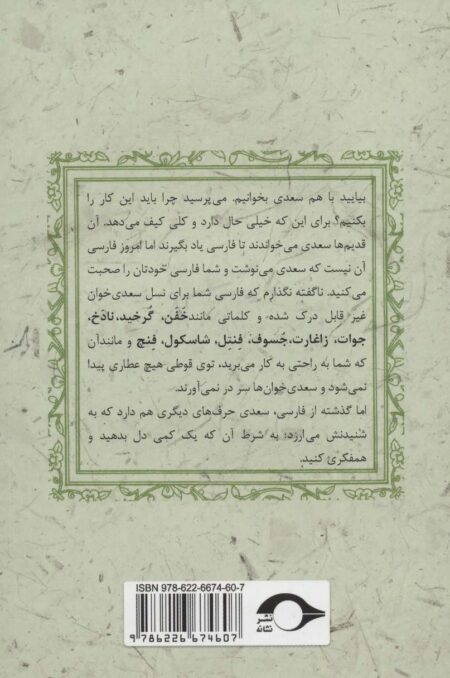 بیایید با هم سعدی بخوانیم. می‌پرسید چرا باید این کار را
بکنیم؟ برای این که خیلی حال دارد و کلی کیف می‌دهد. آن
قدیم‌ها سعدی می‌خواندند تا فارسی یاد بگیرند اما امروز فارسی
آن نیست که سعدی می‌نوشت و شما فارسی خودتان را صحبت
می‌کنید. ناگفته نگذارم که فارسی شما برای نسل سعدی‌خوان
غیر قابل درک شده و کلماتی مانند خَفَن، گرخید، نادَخ،
جوات، زاغارت، جُسوف، فِنتِل، شاسکول، فنچ و مانندآن
که شما به راحتی به کار می‌برید، توی قوطی هیچ عطاری پیدا
نمی‌شود و سعدی‌خوان‌ها سر در نمی‌آورند.
اما گذشته از فارسی، سعدی حرف‌های دیگری هم دارد که به
شنیدنش می‌ارزد؛ به شرط آن که یک کمی دل بدهید و
همفکری کنید.
ISBN 978-622-6674-60-7
9 786226 674607
نشر
نشانه